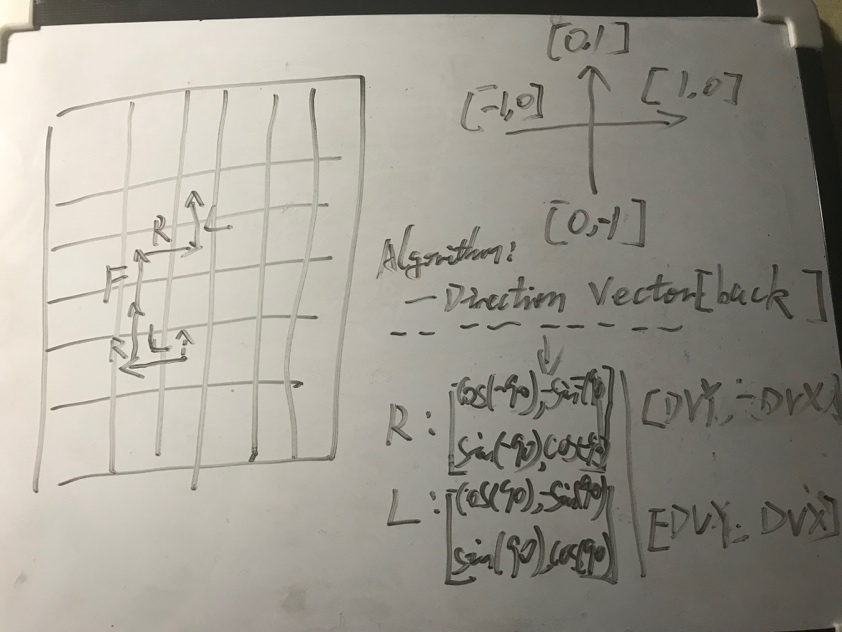 [0,1]
[-1,0]
[1,0]
[0,-1]
R
L
F
R
L
Algorithm:
- Direction Vector[back]
R: [cos(-90), -sin(-90)
sin(-90), cos(-90)] [DVY, -DVX]
L: [cos(90), -sin(90)
sin(90), cos(90)] [DVY, DVX]